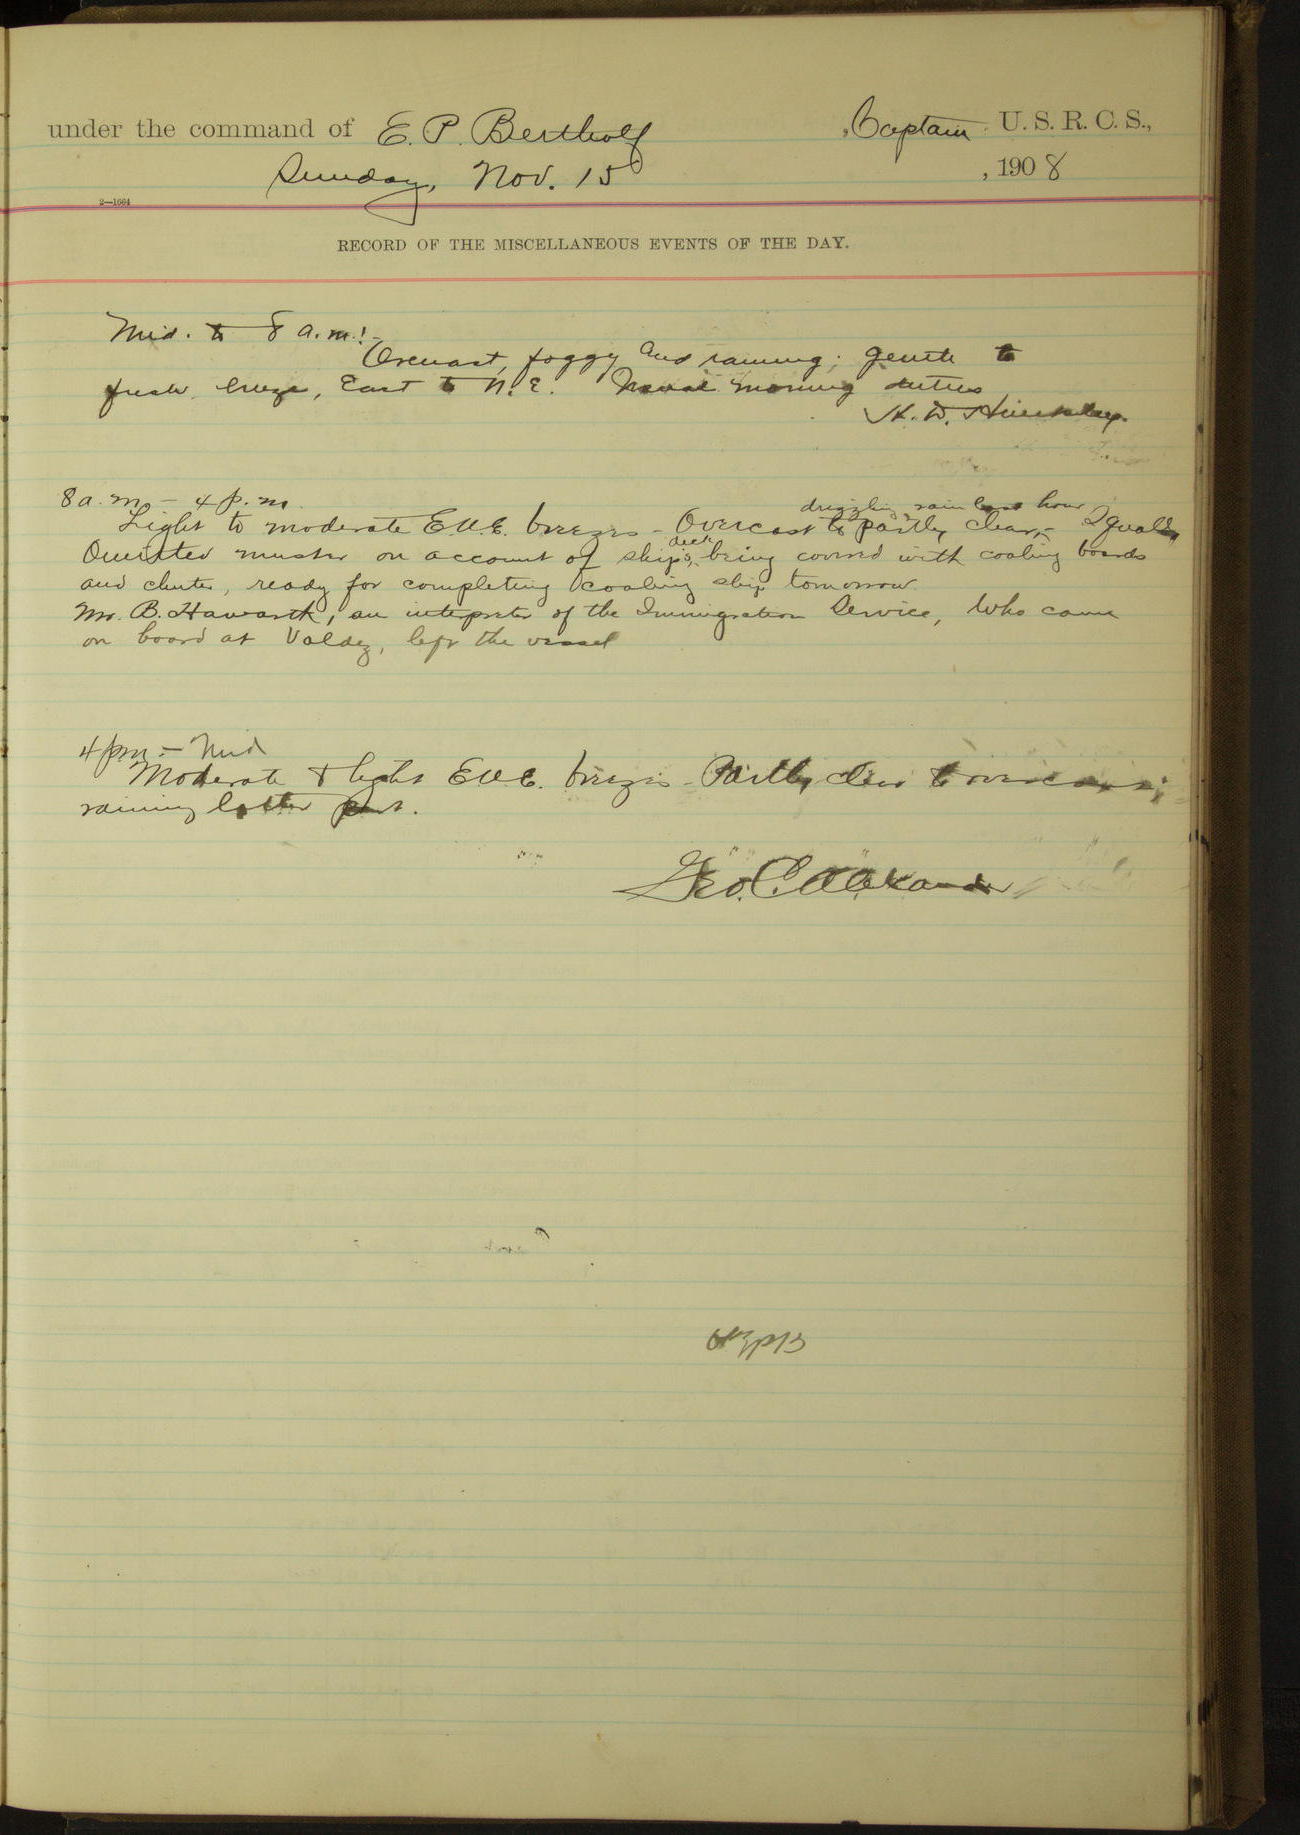 under the command of E. P. Bertholf, Captain U. S. R. C. S.,
Sunday, Nov. 15, 1908
2—1664
RECORD OF THE MISCELLANEOUS EVENTS OF THE DAY.
Mid. to 8 a.m.:-
Overcast, foggy and raining; gentle to
fresh breeze, East to N.E. Usual morning duties
H. W.
8 a. m. - 4 p. m.
drizzling rain last hour
Light to moderate breezes - Overcast to partly clear,-
deck
Omitted muster on account of ship's being covered with coaling boards
and chutes, ready for completing coaling ship tomorrow.
Mr. B. Haworth, an interpreter of the Immigration Service, who came
on board at Valdez, left the vessel
4 pm - Mid
Moderate & light breezes - Partly clear to overcast;
raining latter part.
Geo. C. Alexander